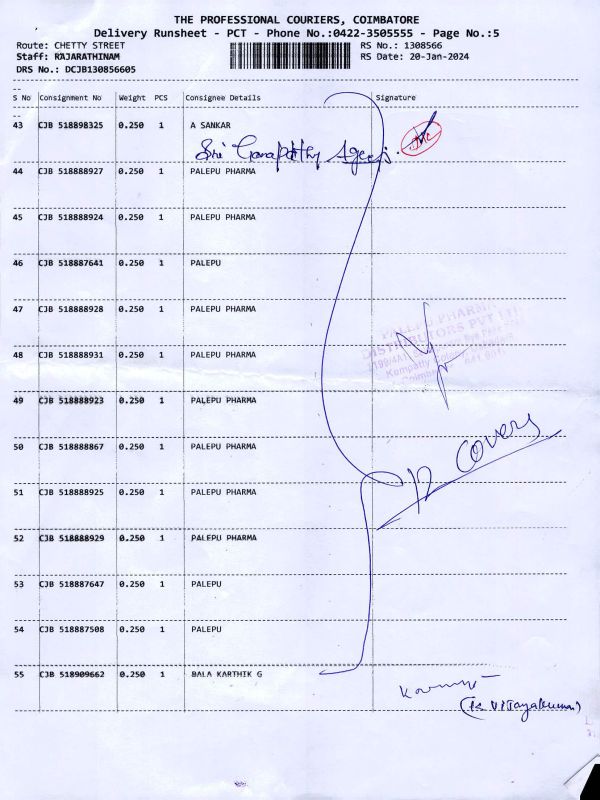 THE PROFESSIONAL COURIERS, COIMBATORE
Delivery Runsheet - PCT - Phone No.:0422-3505555 - Page No.:5
Route: CHETTY STREET RS No.: 1308566
Staff: RAJARATHINAM RS Date: 20-Jan-2024
DRS No.: DCJB130856605
S No Consignment No Weight PCS Consignee Details Signature
43 CJB 518898325 0.250 1 A SANKAR
Sri Ganapathy
44 CJB 518888927 0.250 1 PALEPU PHARMA
45 CJB 518888924 0.250 1 PALEPU PHARMA
46 CJB 518887641 0.250 1 PALEPU
47 CJB 518888928 0.250 1 PALEPU PHARMA
PALEPU PHARMA
DISTRIBUTORS PVT LTD
48 CJB 518888931 0.250 1 PALEPU PHARMA
49 CJB 518888923 0.250 1 PALEPU PHARMA
50 CJB 518888867 0.250 1 PALEPU PHARMA
12 covers
51 CJB 518888925 0.250 1 PALEPU PHARMA
52 CJB 518888929 0.250 1 PALEPU PHARMA
53 CJB 518887647 0.250 1 PALEPU
54 CJB 518887508 0.250 1 PALEPU
55 CJB 518909662 0.250 1 BALA KARTHIK G
(K Vijayakumar)